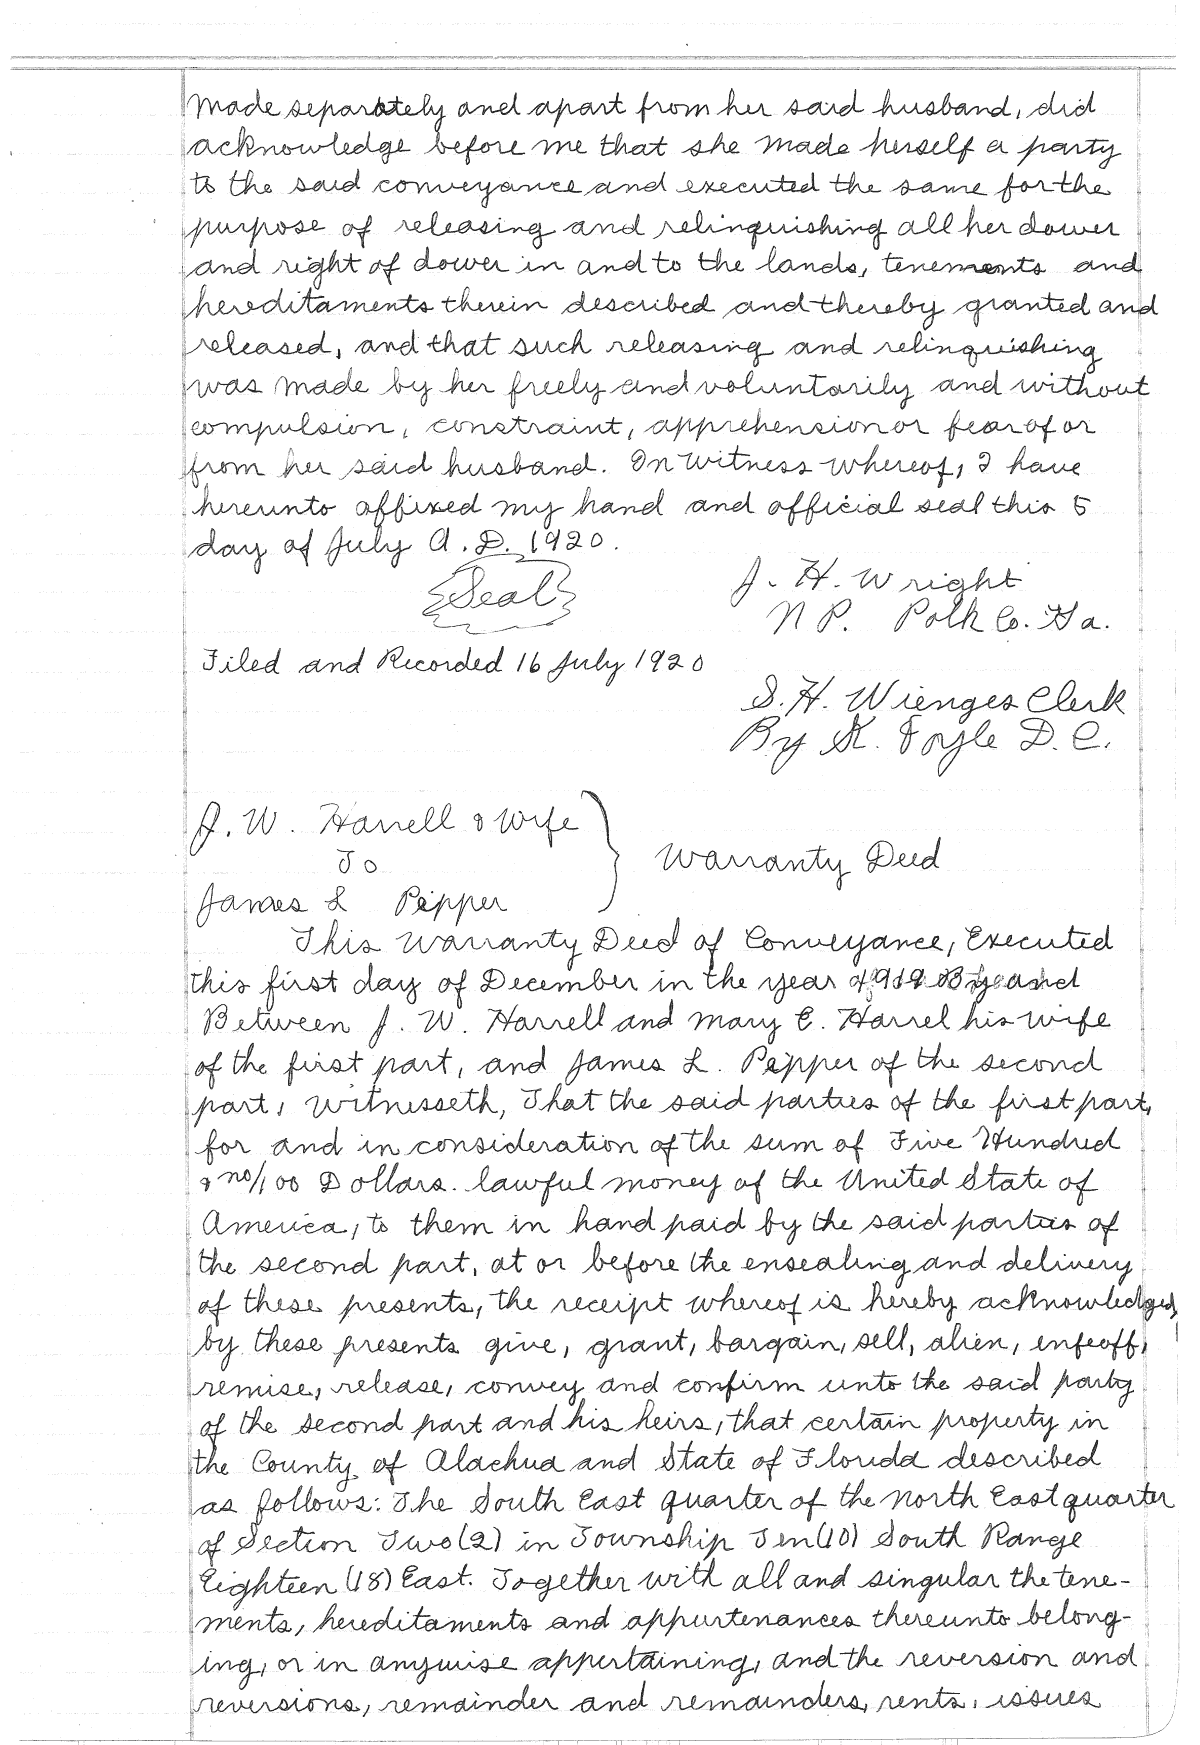 made separately and apart from her said husband, did
acknowledge before me that she made herself a party
to the said conveyance and executed the same for the
purpose of releasing and relinquishing all her dower
and right of dower in and to the lands, tenements and
hereditaments therein described and thereby granted and
released, and that such releasing and relinquishing
was made by her freely and voluntarily and without
compulsion, constraint, apprehension or fear of or
from her said husband. In witness whereof, I have
hereunto affixed my hand and official seal this 5
day of July A.D. 1920.
Seal
J. H. Wright
N P. Polk Co. Ga.
Filed and Recorded 16 July 1920
S. H. Wienges Clerk
By K. Fogle D. C.
J. W. Harrell & Wife
To
James L Pepper
Warranty Deed
This Warranty Deed of Conveyance, Executed
this first day of December in the year 1919 By and
Between J. W. Harrell and Mary E. Harrel his wife
of the first part, and James L. Pepper of the second
part, Witnesseth, That the said parties of the first part,
for and in consideration of the sum of Five Hundred
& no/100 Dollars. lawful money of the United State of
America, to them in hand paid by the said parties of
the second part, at or before the ensealing and delivery
of these presents, the receipt whereof is hereby acknowledged,
by these presents give, grant, bargain, sell, alien, enfeoff,
remise, release, convey and confirm unto the said party
of the second part and his heirs, that certain property in
the County of Alachua and State of Florida described
as follows: The South East quarter of the North East quarter
of Section Two (2) in Township Ten (10) South Range
Eighteen (18) East. Together with all and singular the tene-
ments, hereditaments and appurtenances thereunto belong-
ing, or in anywise appertaining, and the reversion and
reversions, remainder and remainders, rents, issues